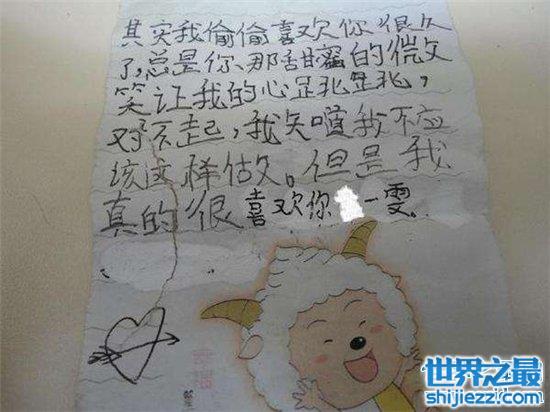 其实我偷偷喜欢你很久
了,总是你、那甜蜜的微文
笑让我的心是死是死,
对不起,我矢道我不应
该这样做。但是我
真的很喜欢你 一雯
世界之最
shijiezz.com